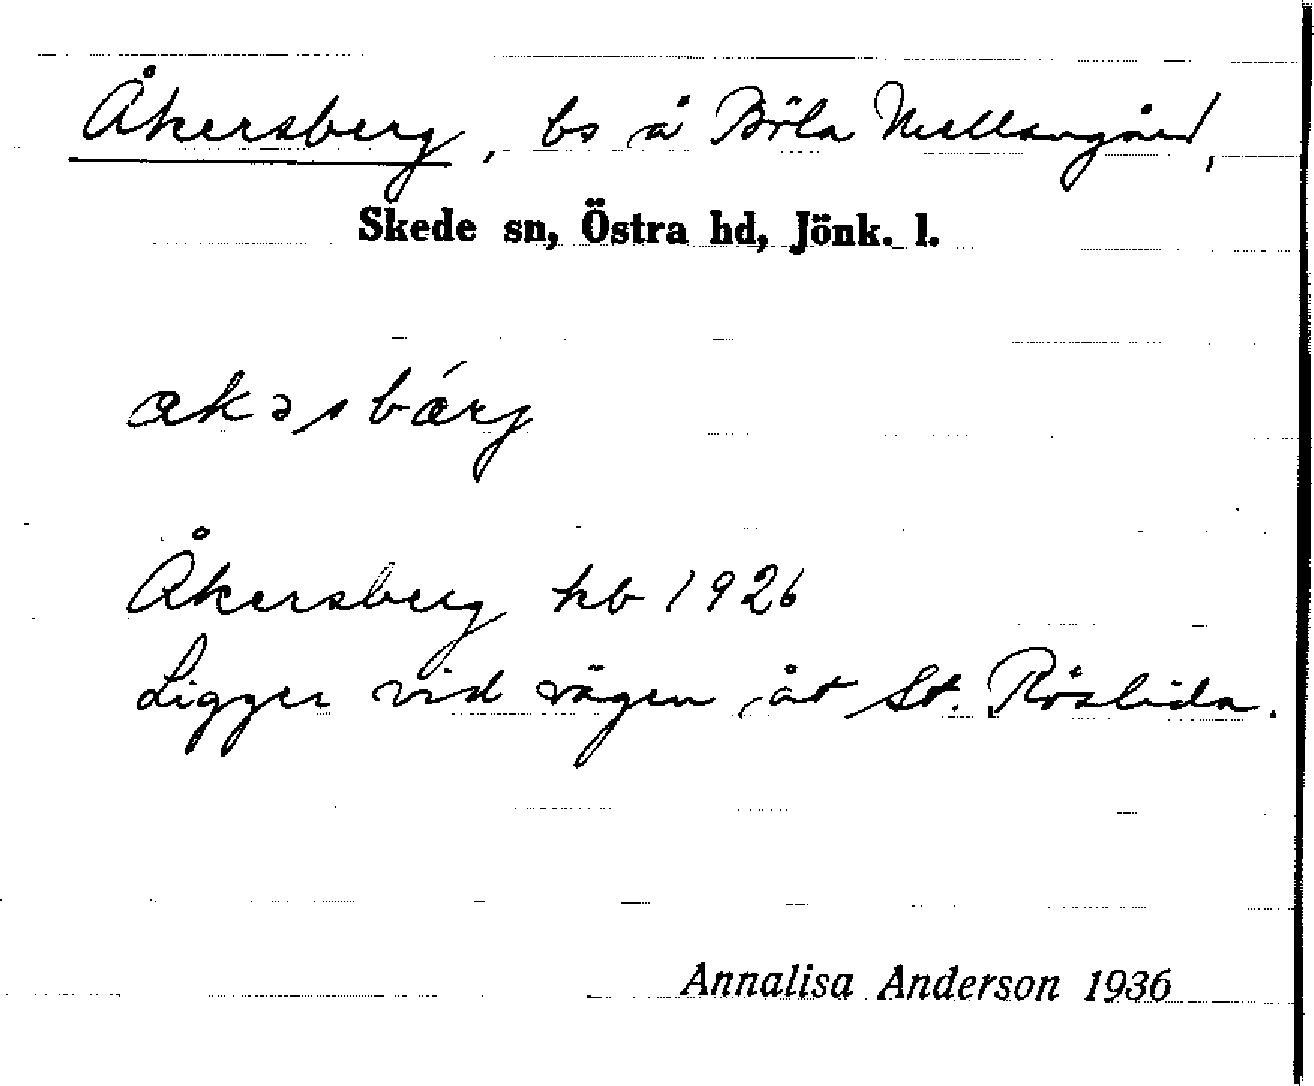 Åkersberg, bs å Böla Mellangård,
Skede sn, Östra hd, Jönk. l.
Åkersberg hb 1926
Ligger vid vägen åt St. Röslida.
Annalisa Anderson 1936